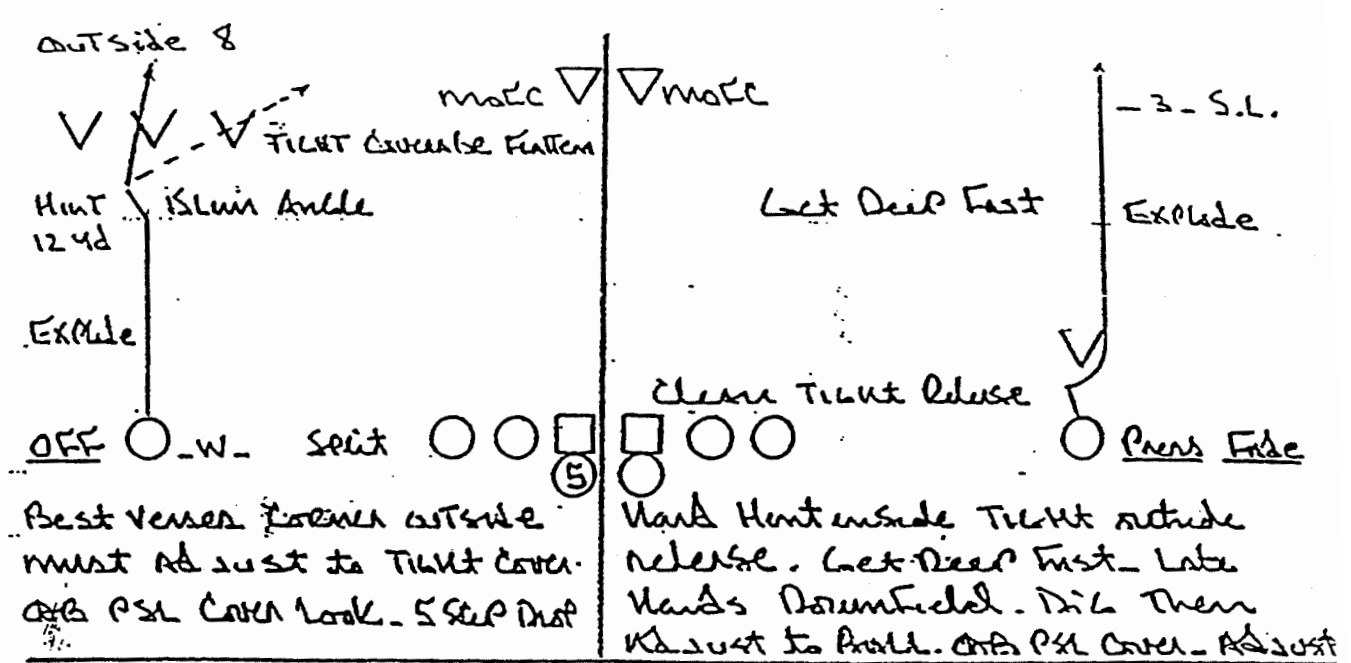 OUTSide 8
MOFC
TIGHT Coverage Flatten
Hint
12 yd
Angle
Explode
OFF
-W-
Split
5
Best Verses Corner outside
must Adjust to Tight Cover.
QB PSL Cover Look - 5 Step Drop
MOFC
- 3 - S.L.
Get Deep Fast
Explode
Clean Tight Release
Press Fade
Hard Hint inside Tight outside
release. Get Deep Fast - Late
Hands Downfield - Dig Then
Adjust to Ball. QB PSL Cover - Adjust